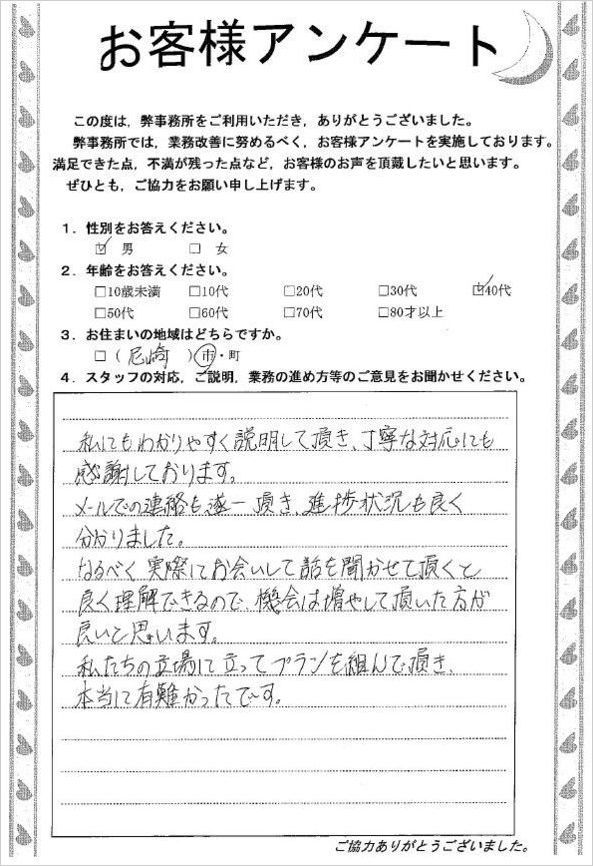 お客様アンケート
この度は，弊事務所をご利用いただき，ありがとうございました。
弊事務所では，業務改善に努めるべく，お客様アンケートを実施しております。
満足できた点，不満が残った点など，お客様のお声を頂戴したいと思います。
ぜひとも，ご協力をお願い申し上げます。
1．性別をお答えください。
☑ 男 □ 女
2．年齢をお答えください。
□10歳未満 □10代 □20代 □30代 ☑40代
□50代 □60代 □70代 □80才以上
3．お住まいの地域はどちらですか。
□（尼崎）市・町
4．スタッフの対応，ご説明，業務の進め方等のご意見をお聞かせください。
私にもわかりやすく説明して頂き、丁寧な対応にも
感謝しております。
メールでの連絡も逐一頂き、進捗状況も良く
分かりました。
なるべく実際にお会いして話を聞かせて頂くと
良く理解できるので、機会は増やして頂いた方が
良いと思います。
私たちの立場に立ってプランを組んで頂き、
本当に有難かったです。
ご協力ありがとうございました。